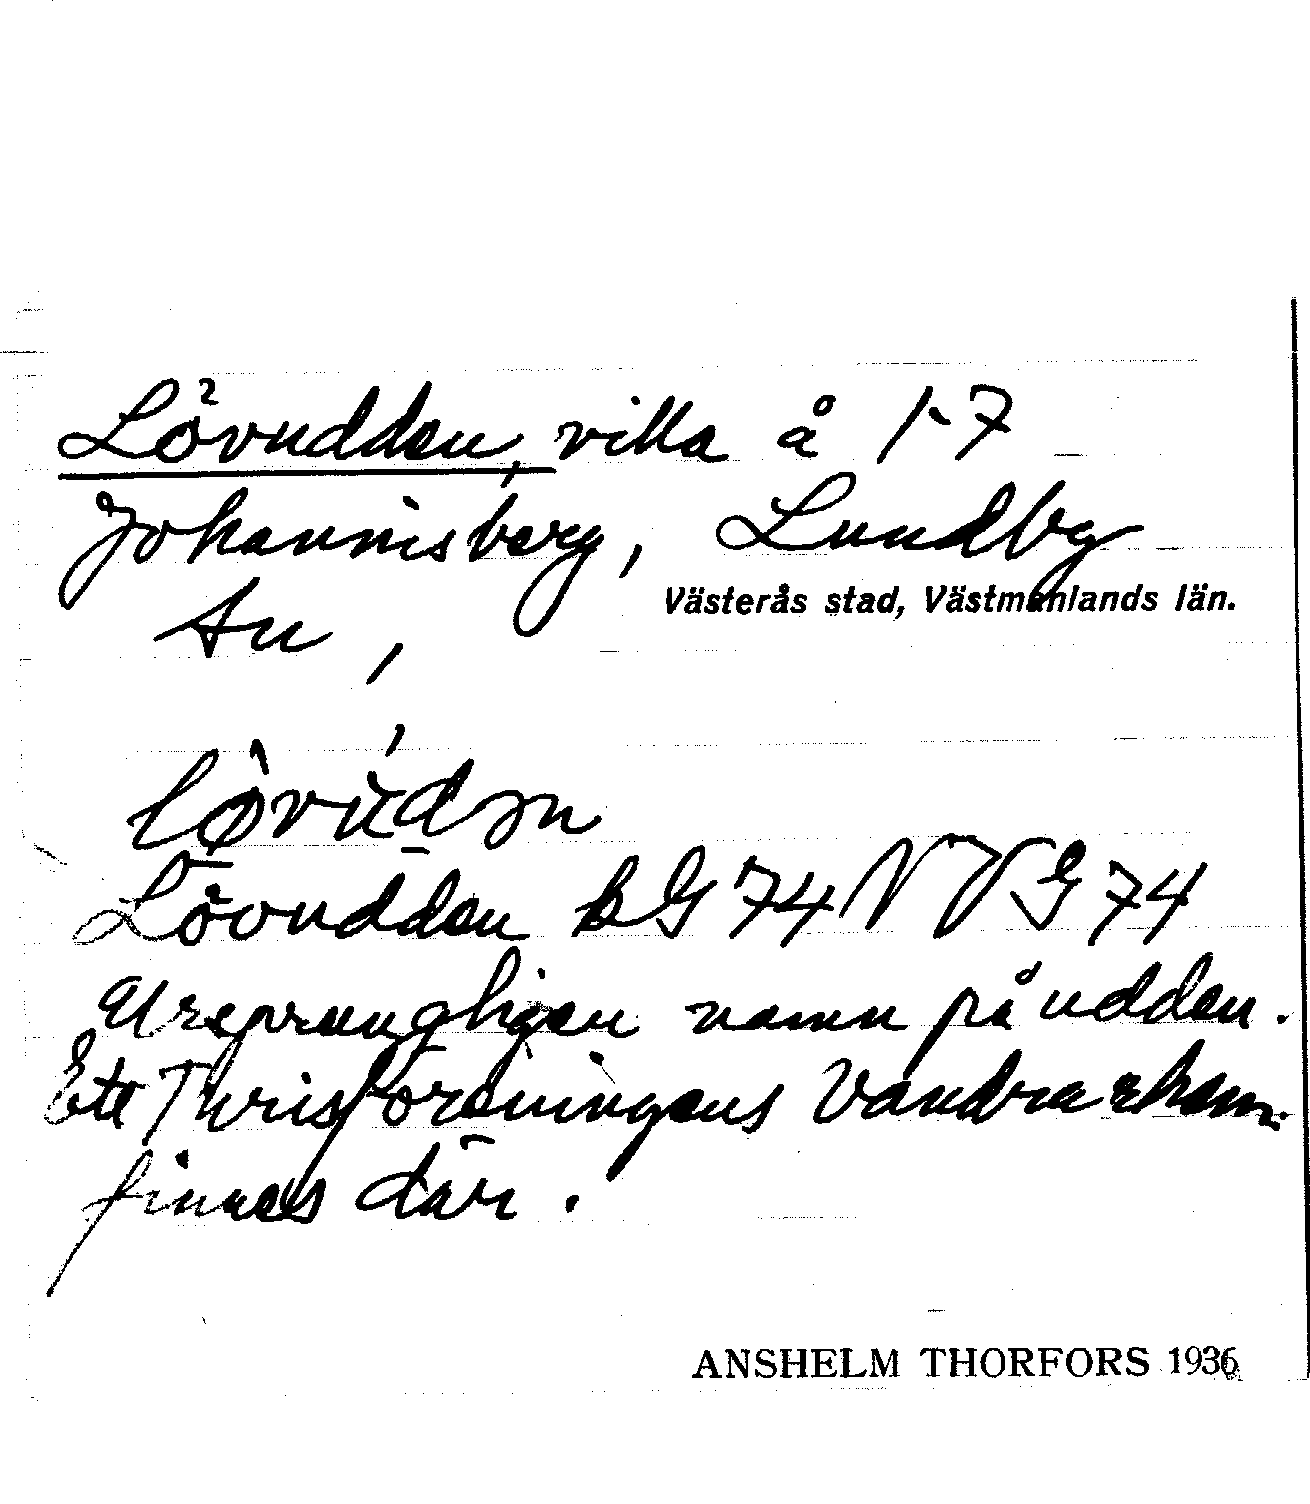 Lövudden, villa å 1-7
Johannisberg, Lundby
Västerås stad, Västmanlands län.
Lövudden BG 74 VVG 74
Ursprungligen namn på udden.
Ett Turisföreningens Vandrarhem
finnes där.
ANSHELM THORFORS 1936